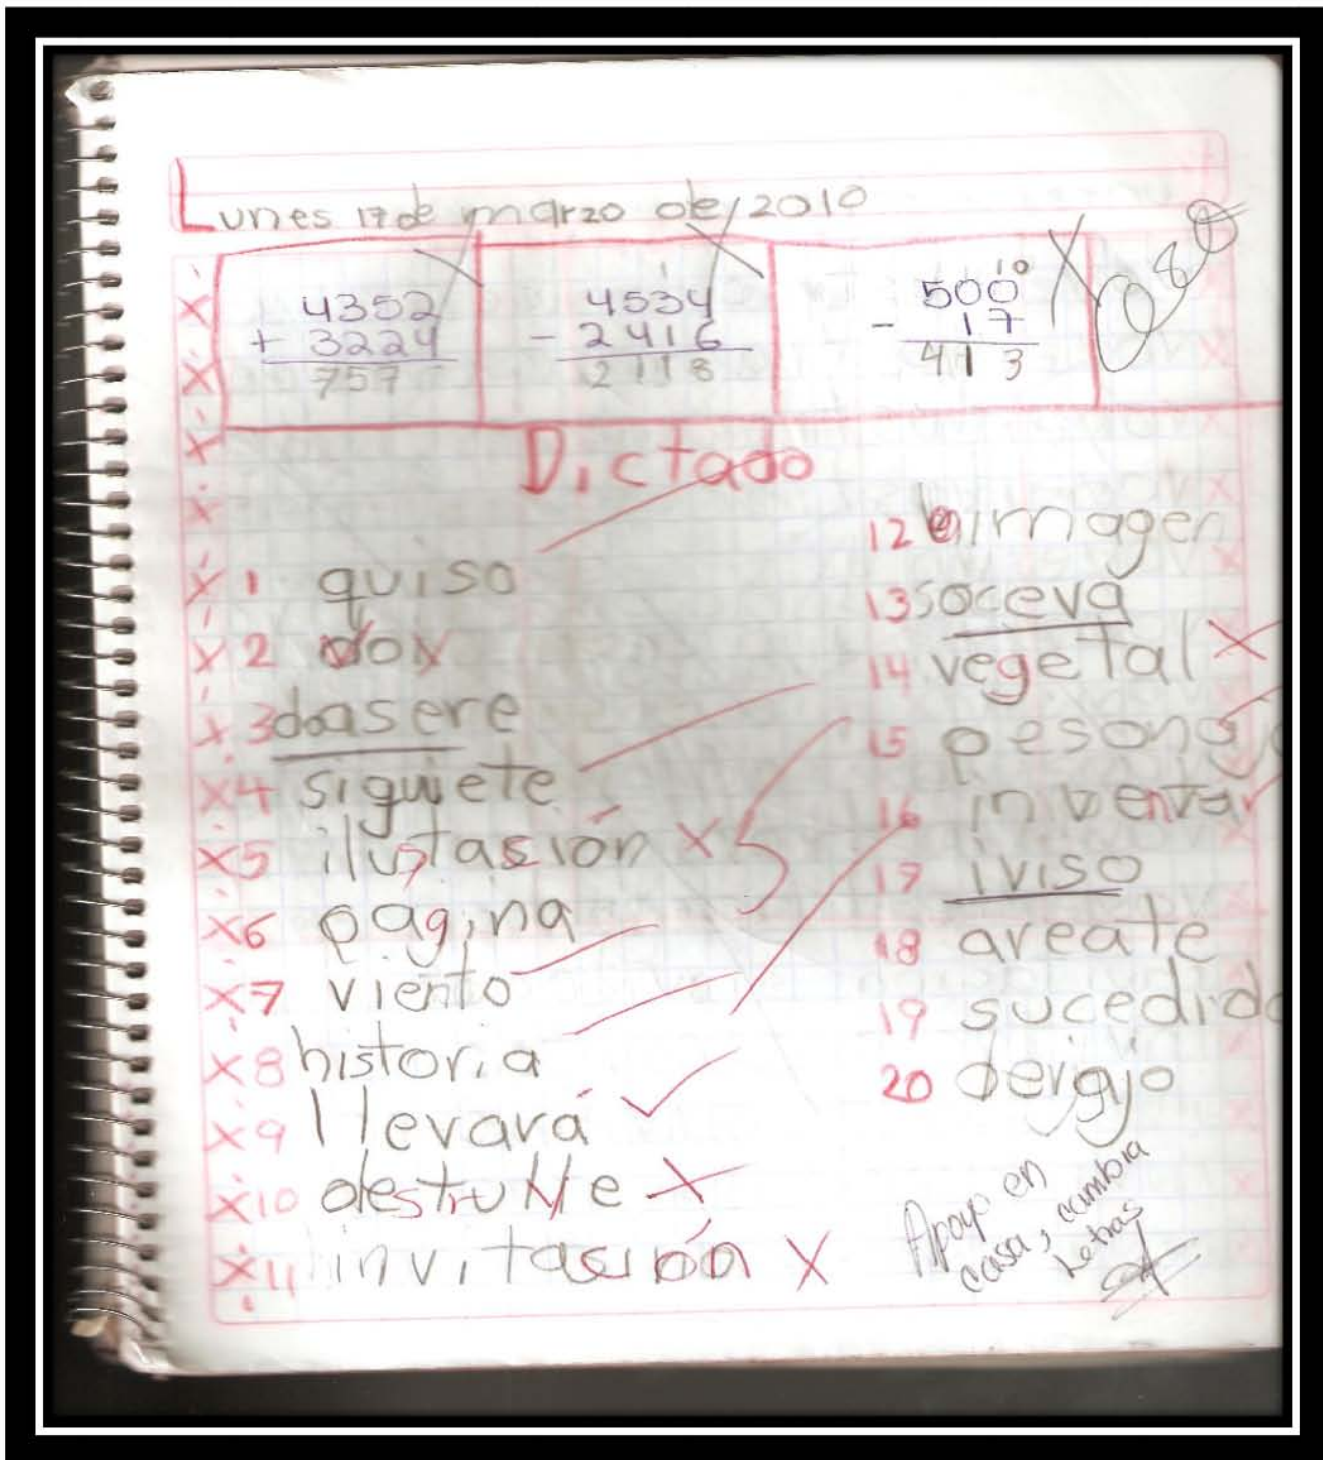 Lunes 17 de marzo de/2010
4352
+ 3224
757
1
4534
- 2416
2118
10
500
- 17
413
Dictado
1 quiso
2 voy
3 doasere
4 siguiete
5 ilustasión
6 pagina
7 viento
8 historia
9 llevará
10 destruye
11 invitasión
12 imagen
13 soceva
14 vegetal
15 pesonaj
16 inventar
17 iviso
18 areate
19 sucedido
20 derajo
Apoyo en
casa, cambia
letras